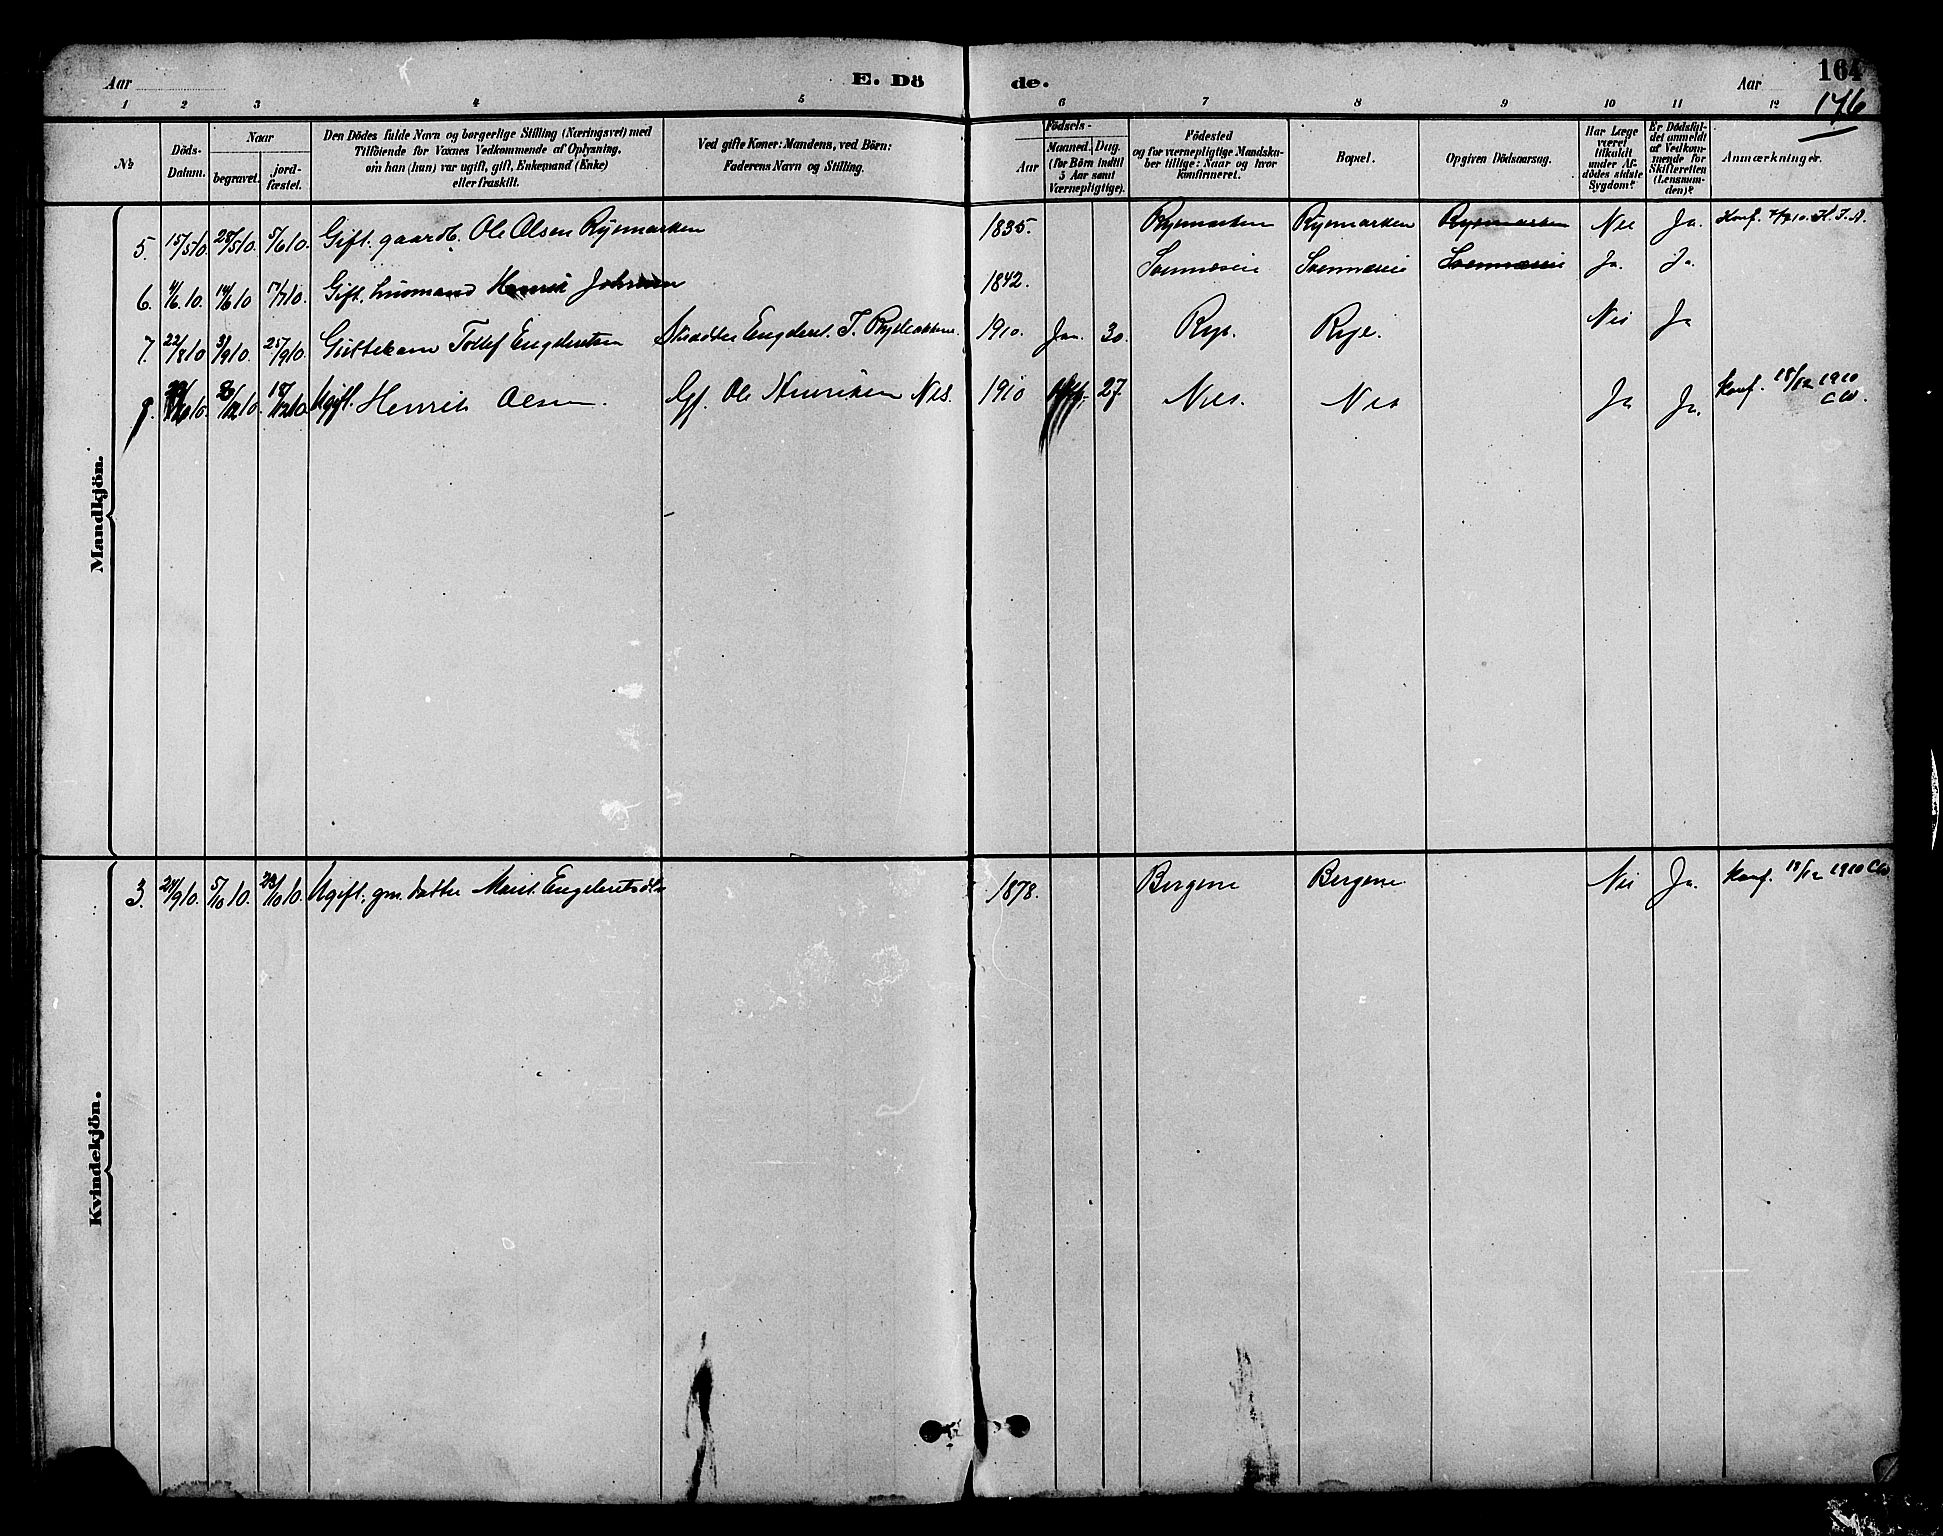 Aar E. Dö de. Aar 164
176
1 2 3 4 5 6 7 8 9 10 11 12
№
Döds-Datum.
Naar
begravet.
jord-fæstet.
Den Dödes fulde Navn og borgerlige Stilling (Næringsvei) med
Tilföiende for Voxnes Vedkommende af Oplysning,
om han (hun) var ugift, gift, Enkemand (Enke)
eller fraskilt.
Ved gifte Koner: Mandens, ved Börn:
Faderens Navn og Stilling.
Födsels-
Aar
Maaned. Dag.
(for Börn indtil
5 Aar samt
Værnepligtige).
Födested
og for værnepligtige Mandska-
ber tillige: Naar og hvor
konfirmeret.
Bopæl.
Opgiven Dödsaarsag.
Har Læge
været
tilkaldt
under Af-
dödes sidste
Sygdom?
Er Dödsfal-
det anmeldt
af Vedkom-
mende for
Skifteretten
(Lensman-
den)?
Anmærkninger.
Mandkjön.
5. 15/5 10. 28/5 10. 5/6 10. Gift. gaardb. Ole Olsen Ryemarken 1835. Ryemarken Ryemarken Ryemarken Nei Ja. Konf.
6. 4/6 10. 14/6 10 17/7 10. Gift. husmand Henrik Johnsen 1842. Ja. Ja.
7. 22/8 10 3/9 10. 25/9 10. Gittekam Tollef Engebretsen Engebret. T. 1910. Jan. 30. Rye. Rye. Nei Ja
8. 18/12 10. Ugift. Henrik Olsen. Gf. Ole Henriksen Nes. 1910 27. Nes. Nes Ja Ja. Konf. 18/12 1910 CW.
Kvindekjön.
3. 24/9 10. 5/10 10. 23/10 10. Ugift. gm. datter Marit Engebretsdtr 1878. Bergene Bergene Nei Ja. Konf. 18/12 1910 CW